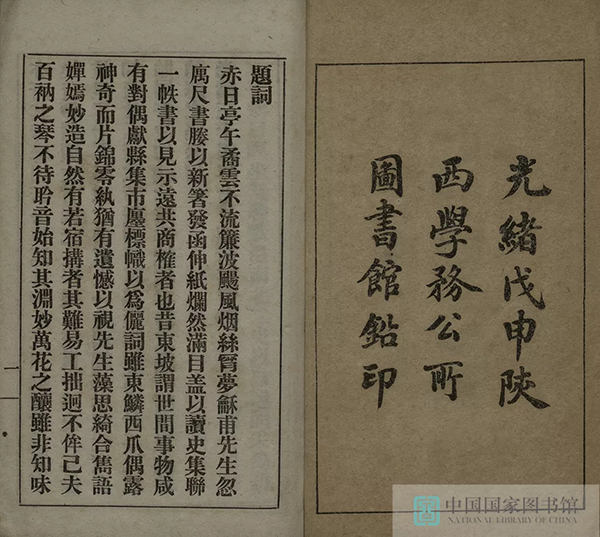 光緒戊申陜
西學務公所
圖書館鉛印
題詞
赤日亭午矞雲不流簾波颺風烟絲罥夢龢甫先生忽
厲尺書媵以新箸發函伸紙爛然滿目盖以讀史集聯
一帙書以見示遠共商榷者也昔東坡謂世間事物咸
有對偶獻縣集市廛標幟以爲儷詞雖東鱗西爪偶露
神奇而片錦零紈猶有遺憾以視先生藻思綺合雋語
嬋嫣妙造自然有若宿搆者其難易工拙迥不侔已夫
百衲之琴不待聆音始知其淵妙萬花之釀雖非知味
一
中国国家图书馆
NATIONAL LIBRARY OF CHINA